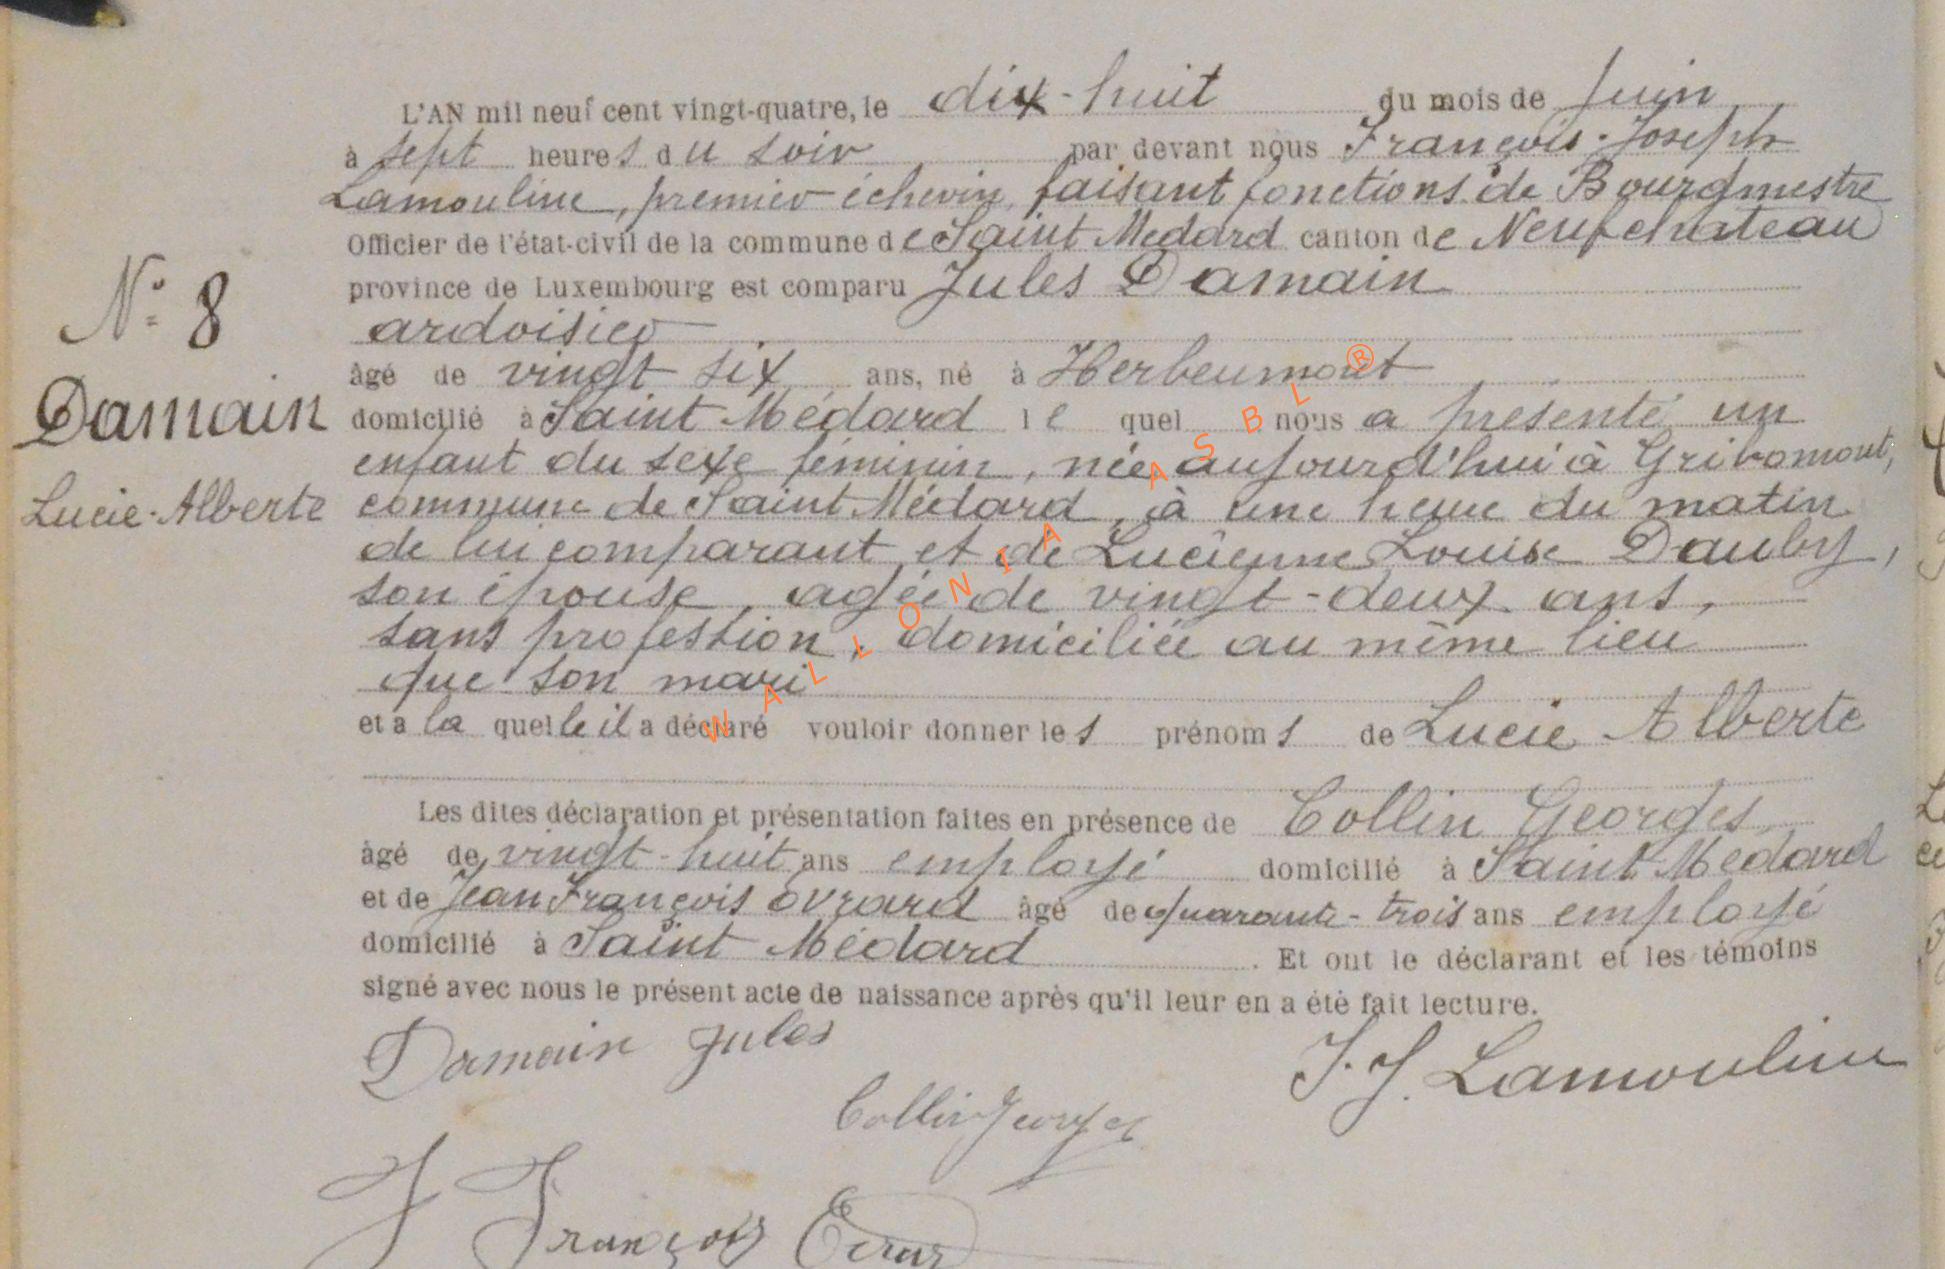 L'AN mil neuf cent vingt-quatre, le dix-huit du mois de Juin
à sept heures du soir par devant nous François-Joseph
Lamouline, premier échevin, faisant fonctions de Bourgmestre
Officier de l'état-civil de la commune de Saint Medard canton de Neufchateau
province de Luxembourg est comparu Jules Damain
ardoisier
âgé de vingt six ans, né à Herbeumont
domicilié à Saint Médard lequel nous a présenté un
enfant du sexe féminin, née aujourd'hui à Gribomont,
commune de Saint Médard, à une heure du matin
de lui comparant et de Lucienne Louise Dauby,
son épouse, agée de vingt-deux ans,
sans profession, domiciliée au même lieu
que son mari
et a la quelle il a déclaré vouloir donner les prénoms de Lucie Alberte
Les dites déclaration et présentation faites en présence de Collin Georges
âgé de vingt-huit ans employé domicilié à Saint Medard
et de Jean François Evrard âgé de quarante-trois ans employé
domicilié à Saint Médard. Et ont le déclarant et les témoins
signé avec nous le présent acte de naissance après qu'il leur en a été fait lecture.
N° 8
Damain
Lucie-Alberte
Damain Jules
J. J. Lamouline
Collin Georges
J François
WALLONIA ASBL ®